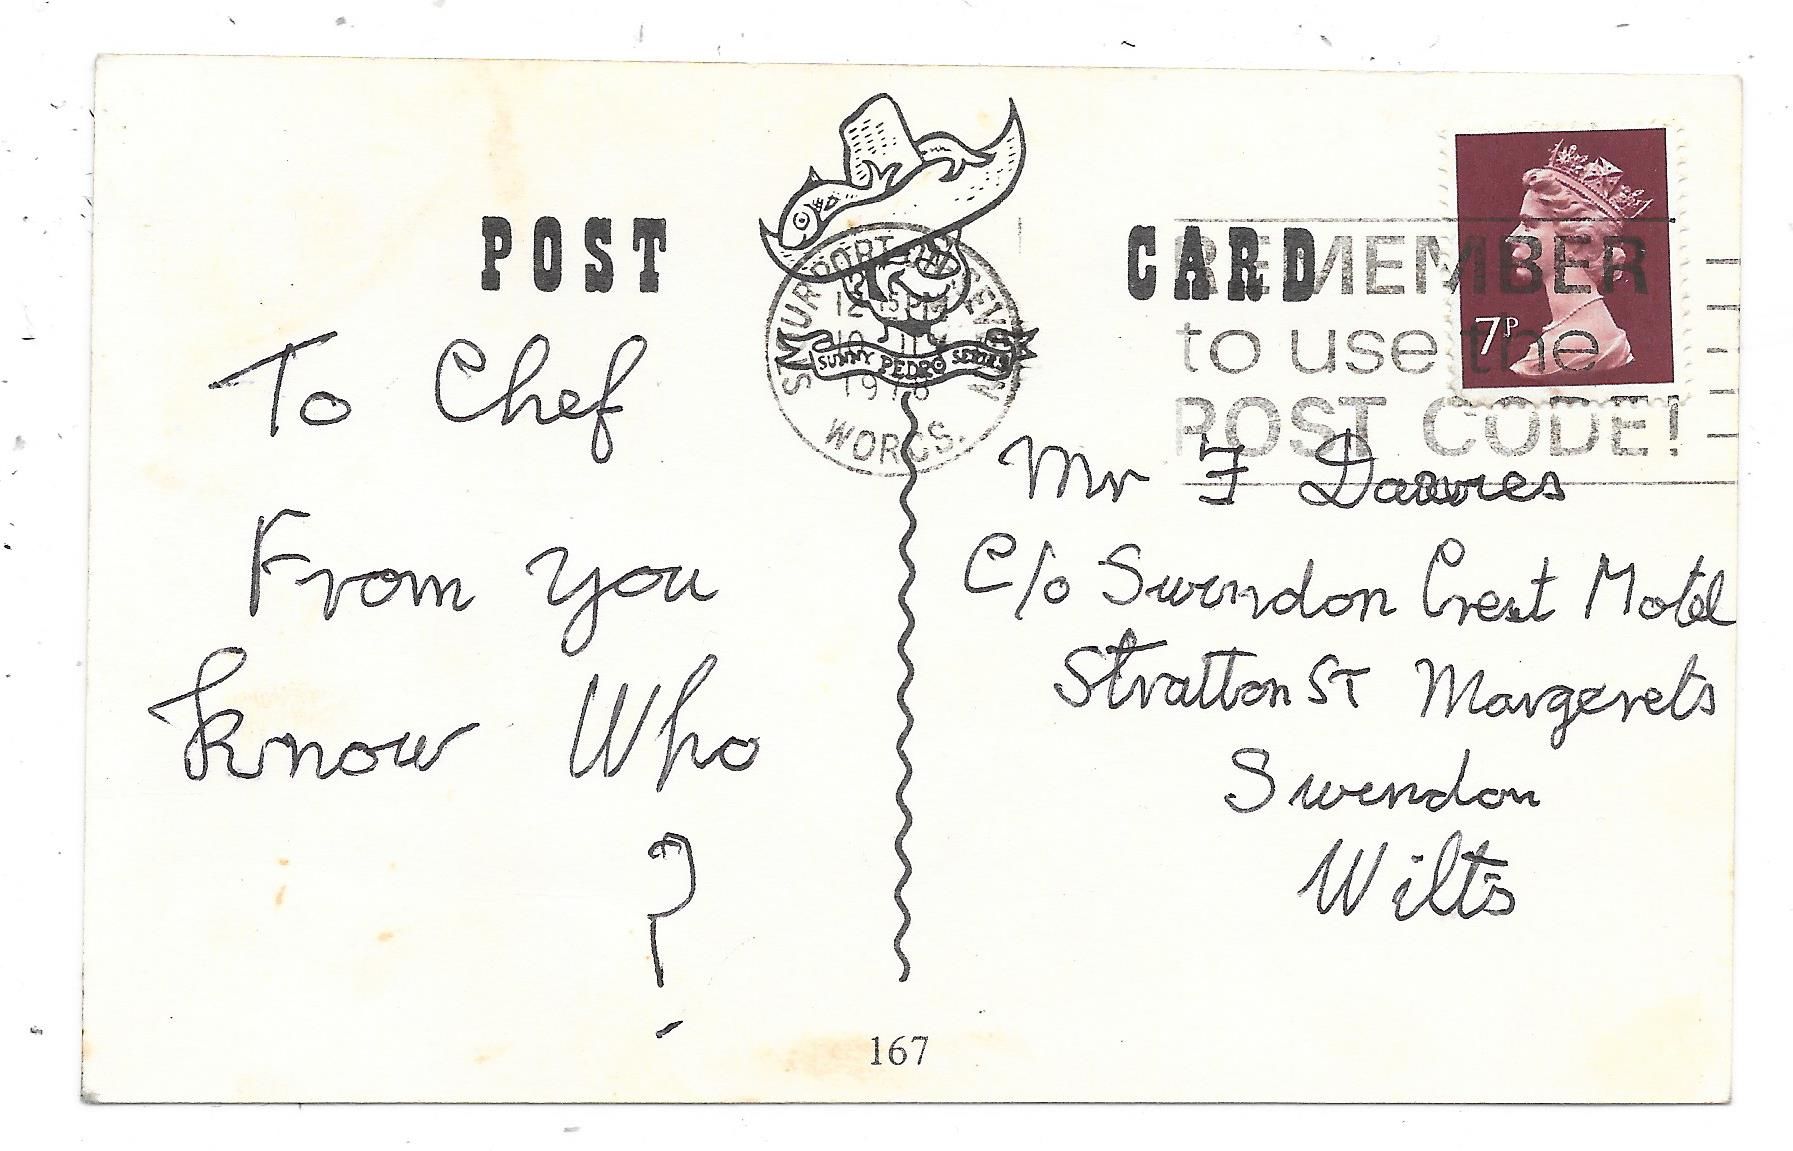 POST CARD
STOURPORT-ON-SEVERN
1978
WORCS.
SUNNY PEDRO SERIES
REMEMBER
to use the
POST CODE!
7P
To Chef
From you
Know Who
?
Mr F Davies
C/o Swindon Crest Motel
Stratton ST Margarets
Swindon
Wilts
167